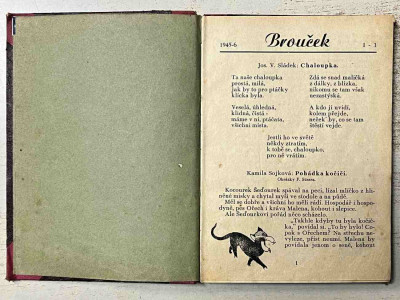 1945-6
Brouček
1 - 1
Jos. V. Sládek: Chaloupka.
Ta naše chaloupka
prostá, milá,
jak by to pro ptáčky
klícka byla.
Veselá, úhledná,
klidná, čistá -
máme v ní, ptáčata,
všichni místa.
Zdá se snad maličká
z dálky, z blízka,
nikomu se tam však
nezastýská.
A kdo ji uvidí,
kolem přejde,
neřek' by, co se tam
štěstí vejde.
Jestli ho ve světě
někdy ztratím,
k tobě se, chaloupko,
pro ně vrátím.
Kamila Sojková: Pohádka kočičí.
Obrázky F.
Kocourek Šesťourek spával na peci, lízal mlíčko z hli-
něné misky a chytal myši ve stodole a na půdě.
Měl se dobře a všichni ho měli rádi. Hospodář i hospody-
ně, pes Ořech i kráva Malena, kohout i slepice.
Ale Šesťourkovi pořád něco scházelo.
„Takhle kdyby tu byla kočič-
ka," povídal si. „To by bylo! Co-
pak s Ořechem? Na střechu ne-
vyleze, příst neumí. Malena by
povídala jenom o seně, kohout
1